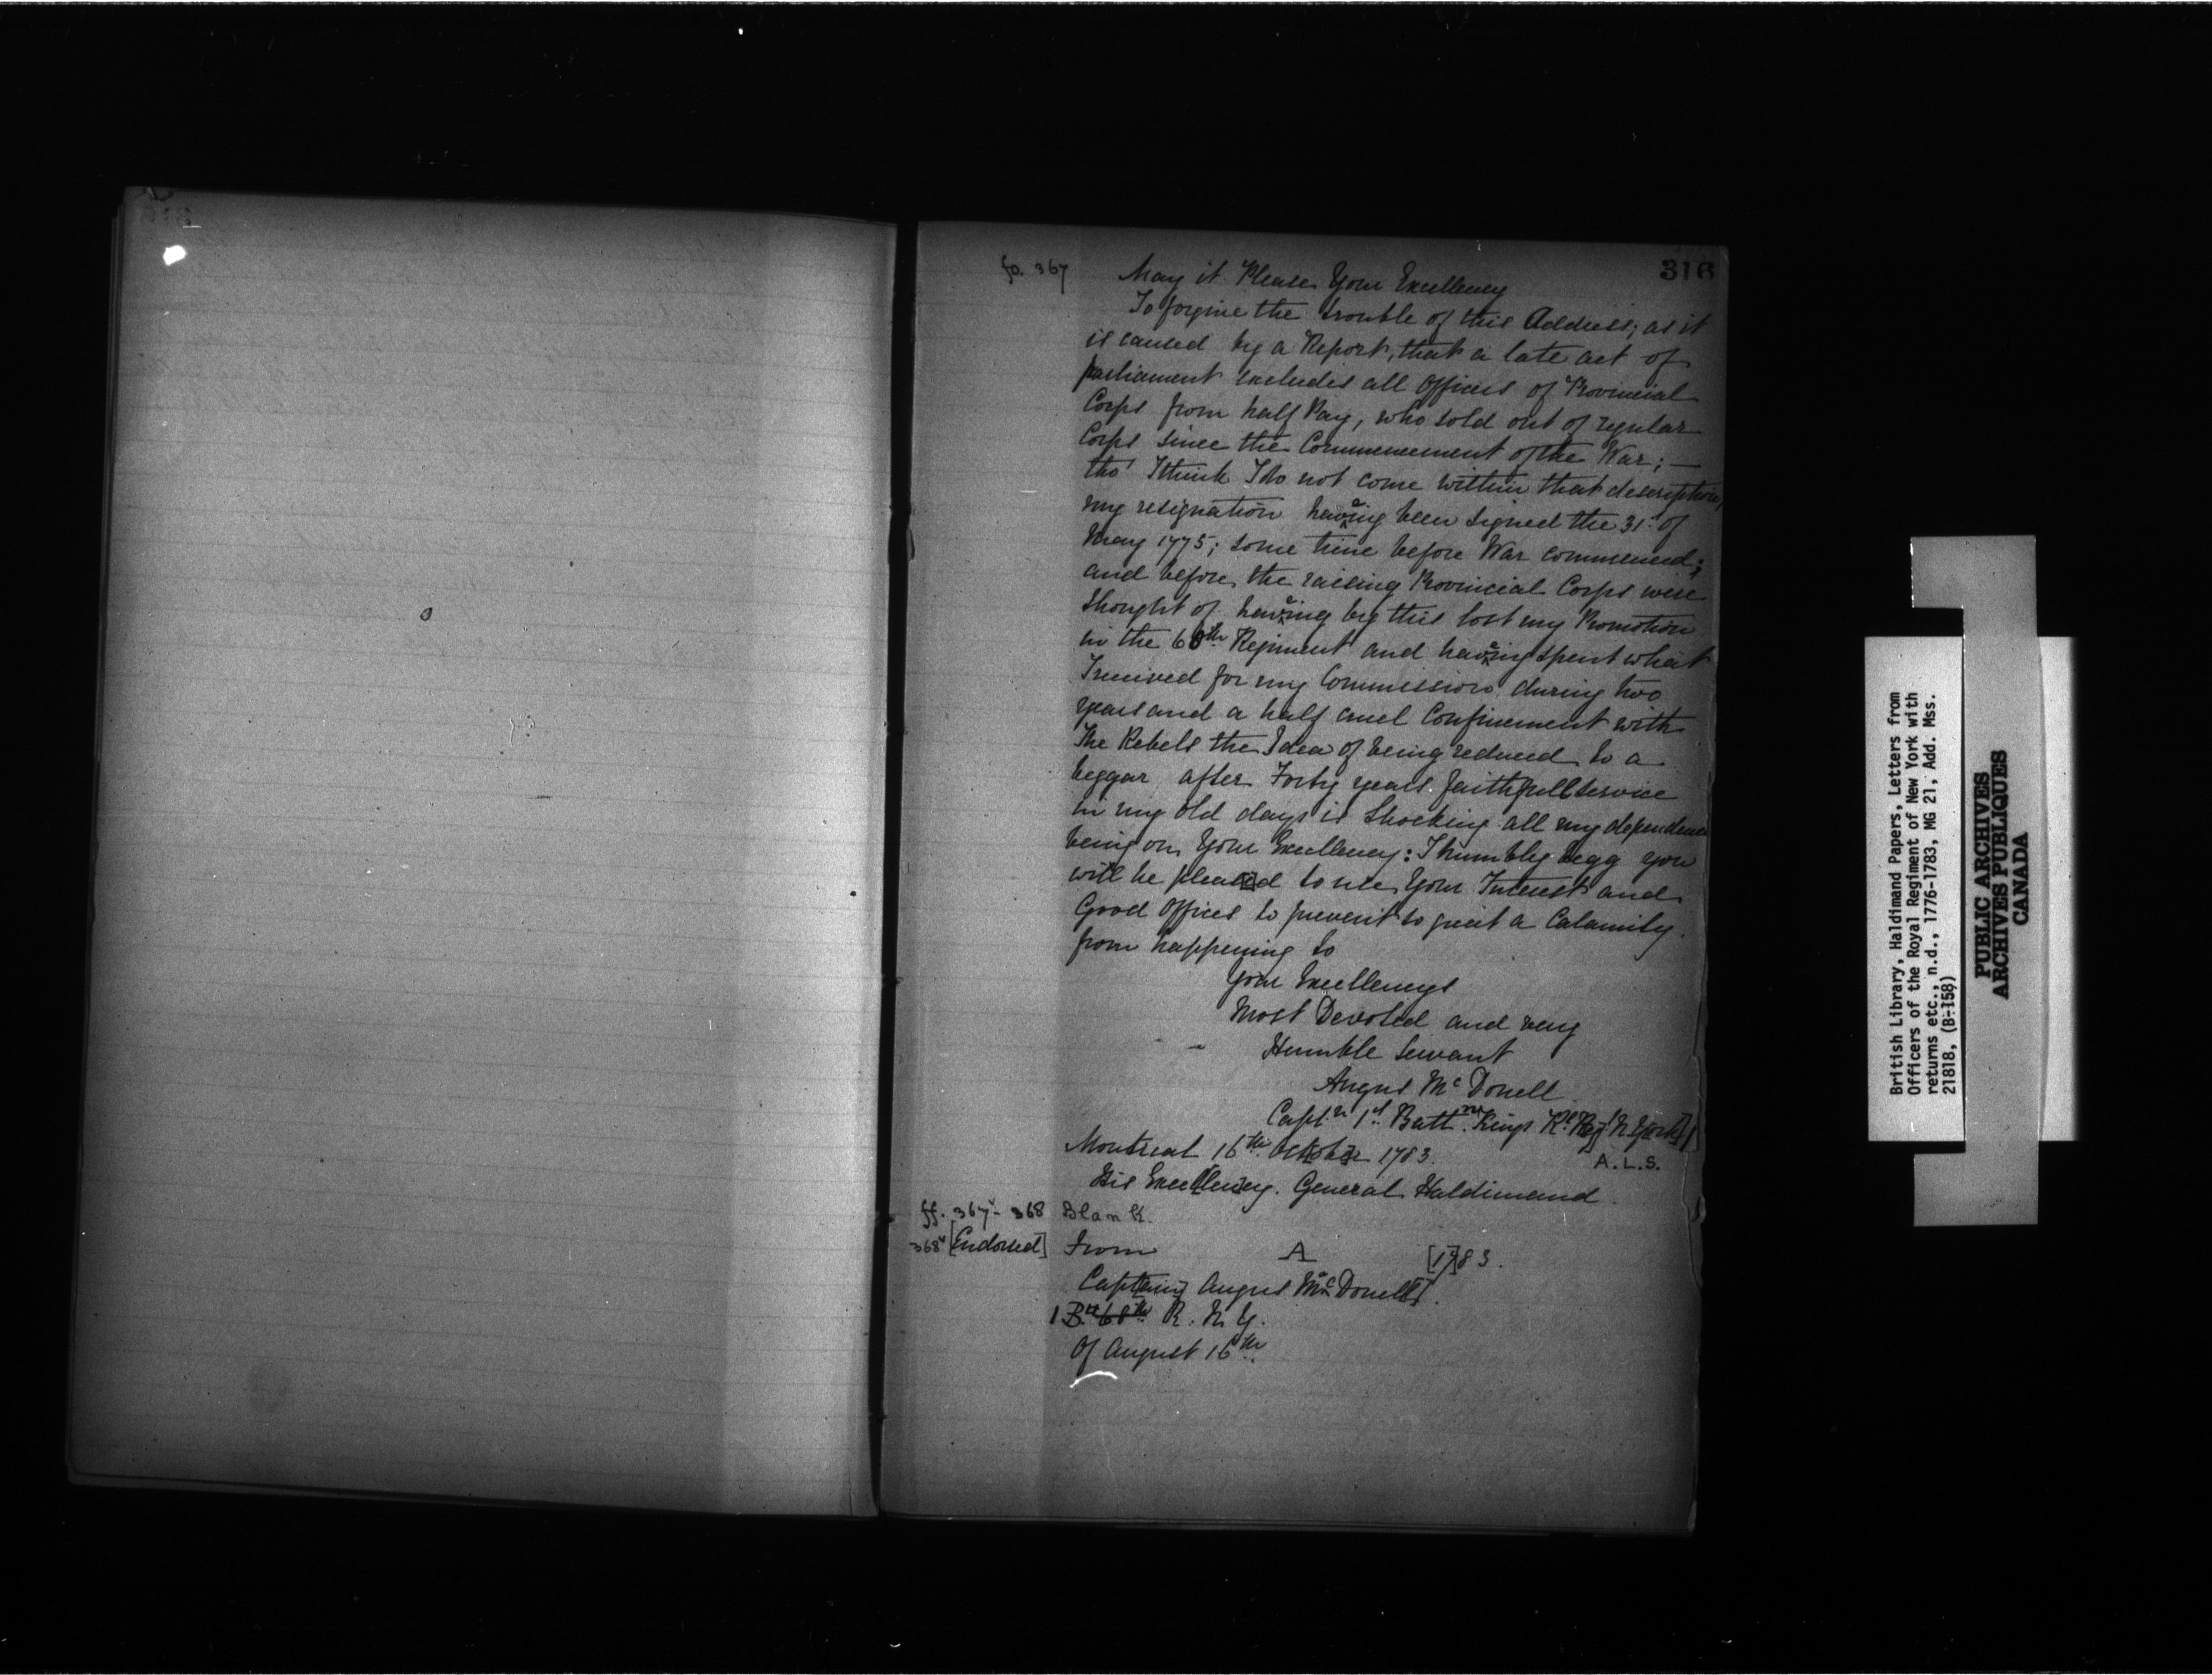 316
fo. 367
May it Please Your Excellency
To forgive the trouble of this Address; as it
is caused by a Report, that a late act of
parliament excludes all Officers of Provincial
Corps from half Pay, who sold out of regular
Corps since the Commencement of the War; —
tho' I think I do not come within that description,
my resignation having been signed the 31st of
May 1775; some time before War commenced;
and before the raising Provincial Corps were
thought of. having by this lost my Promotion
in the 60th Regiment and having spent what
I received for my Commission during two
years and a half cruel Confinement with
The Rebels the Idea of being reduced to a
beggar after Forty years faithfull Service
in my old days is shocking all my dependence
being on Your Excellency: I humbly begg you
will be pleas[e]d to use Your Interest and
Good Offices to prevent so great a Calamity
from happening to
Your Excellencys
Most Devoted and very
Humble Servant
Angus Mc Donell
Captn 1st Battn Kings Rl Reg[t] N York[s]
Montreal 16th October 1783.
A.L.S.
His Excellency. General Haldimand.
ff. 367v - 368 Blank.
368v [Endorsed] From A [17]83.
Capt[ain] Angus Mc Donell[s].
1 Bn 60th R. N. Y.
Of August 16th
British Library, Haldimand Papers, Letters from
Officers of the Royal Regiment of New York with
returns etc., n.d., 1776-1783, MG 21, Add. Mss.
21818, (B-158)
PUBLIC ARCHIVES
ARCHIVES PUBLIQUES
CANADA